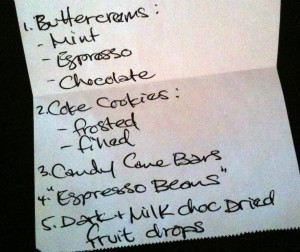 1. Buttercreams:
- Mint
- Espresso
- Chocolate
2. Cake Cookies:
- frosted
- filled
3. Candy Cane Bars
4. "Espresso Beans"
5. Dark + Milk choc Dried
fruit drops